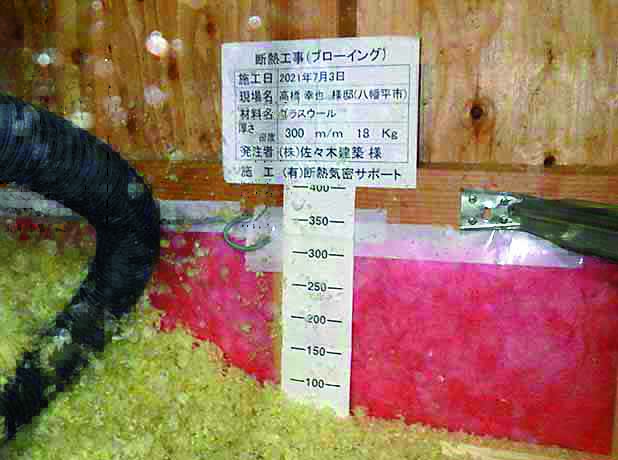 断熱工事(ブローイング)
施工日 2021年7月3日
現場名 高橋 幸也 様邸(八幡平市)
材料名 グラスウール
厚さ 密度 300 m/m 18 Kg
発注者 (株)佐々木建築 様
施工 (有)断熱気密サポート
400
350
300
250
200
150
100